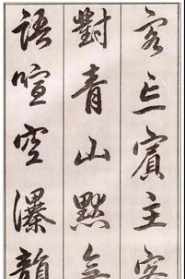 客亡賓主
對青山默
語喧空瀑韻